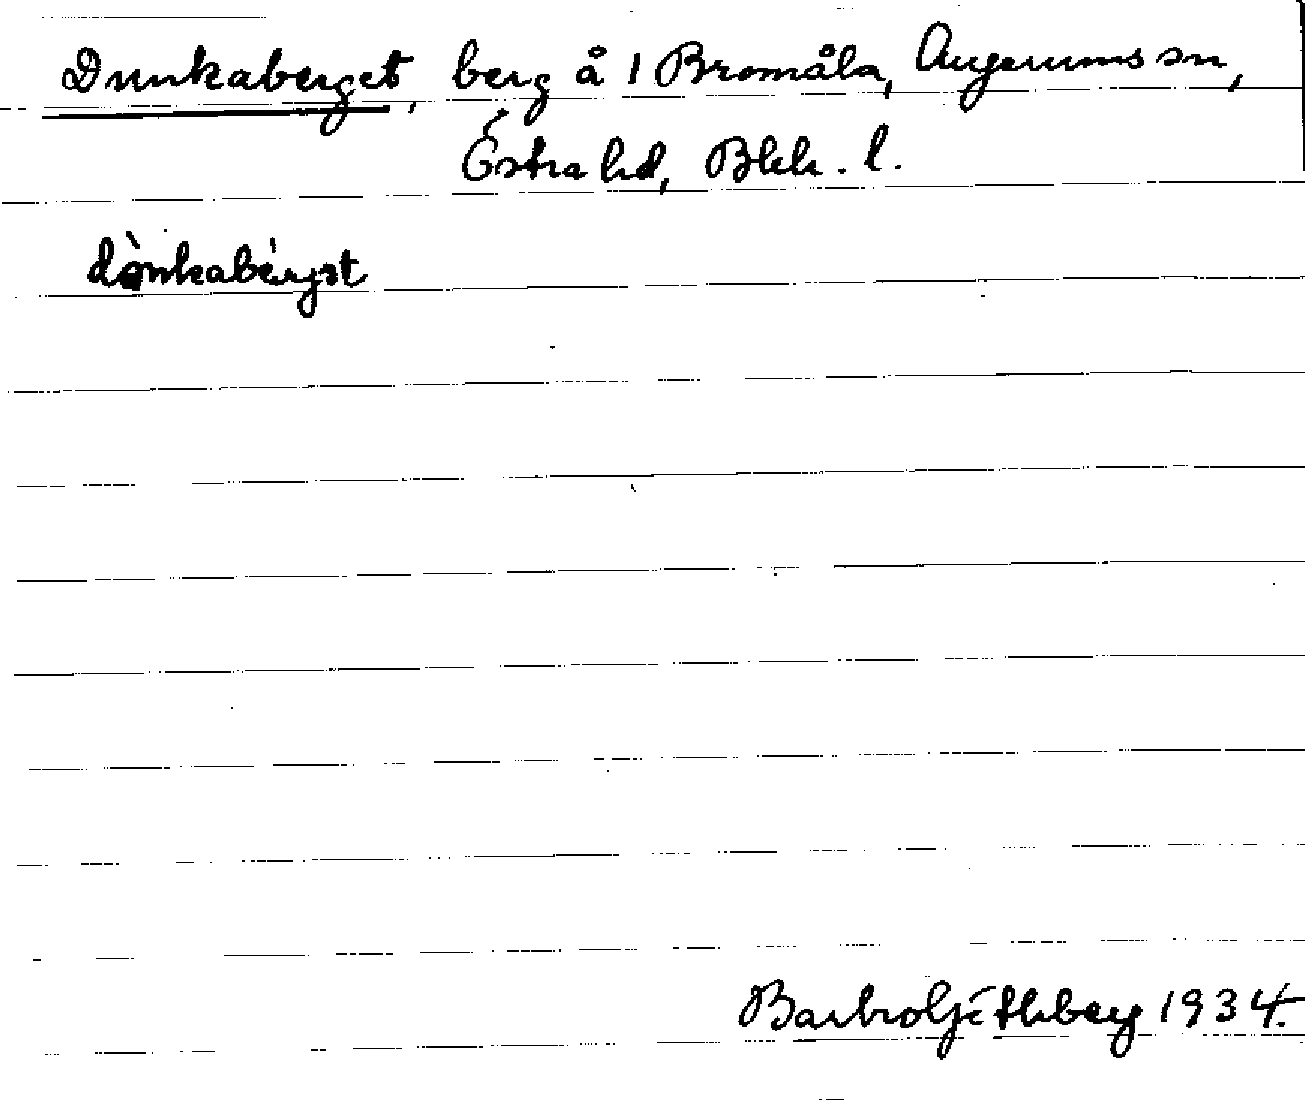 Dunkaberget, berg å 1 Bromåla, Augerums sn,
Östra hd, Blek. l.
dònkabèrjət
Barbro Götheberg 1934.